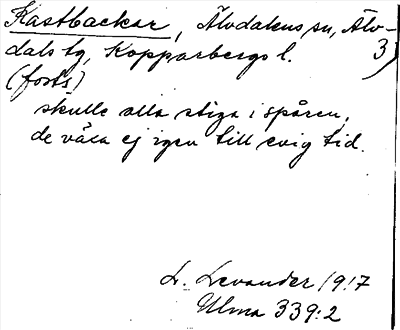 Kastbackar, Älvdalens sn, Älv-
dals tg, Kopparbergs l. 3)
(forts)
skulle alla stiga i spåren,
de växa ej igen till evig tid.
L. Levander 1917
Ulma 339:2